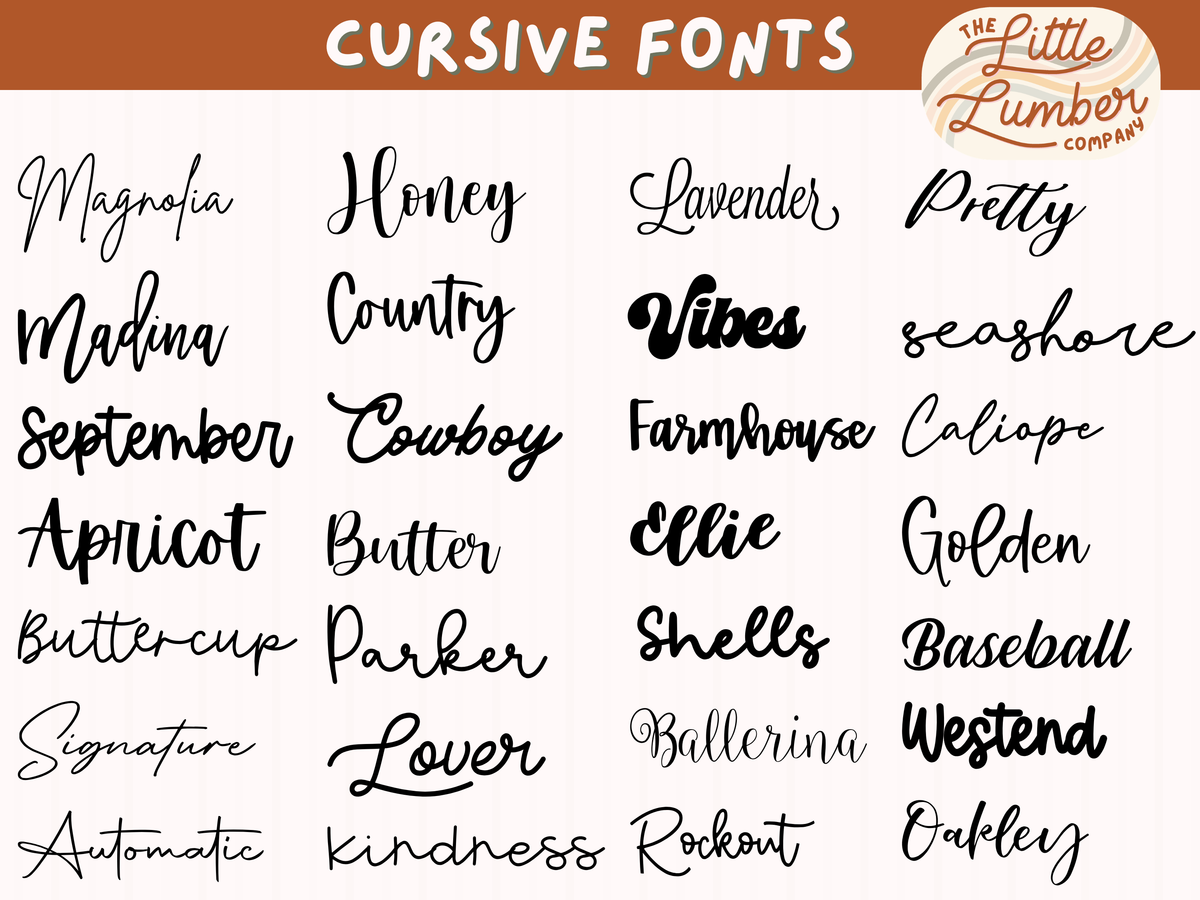 CURSIVE FONTS
THE
Little
Lumber
COMPANY
Magnolia
Honey
Lavender
Pretty
Madina
Country
Vibes
seashore
September
Cowboy
Farmhouse
Caliope
Apricot
Butter
Ellie
Golden
Buttercup
Parker
Shells
Baseball
Signature
Lover
Ballerina
Westend
Automatic
kindness
Rockout
Oakley